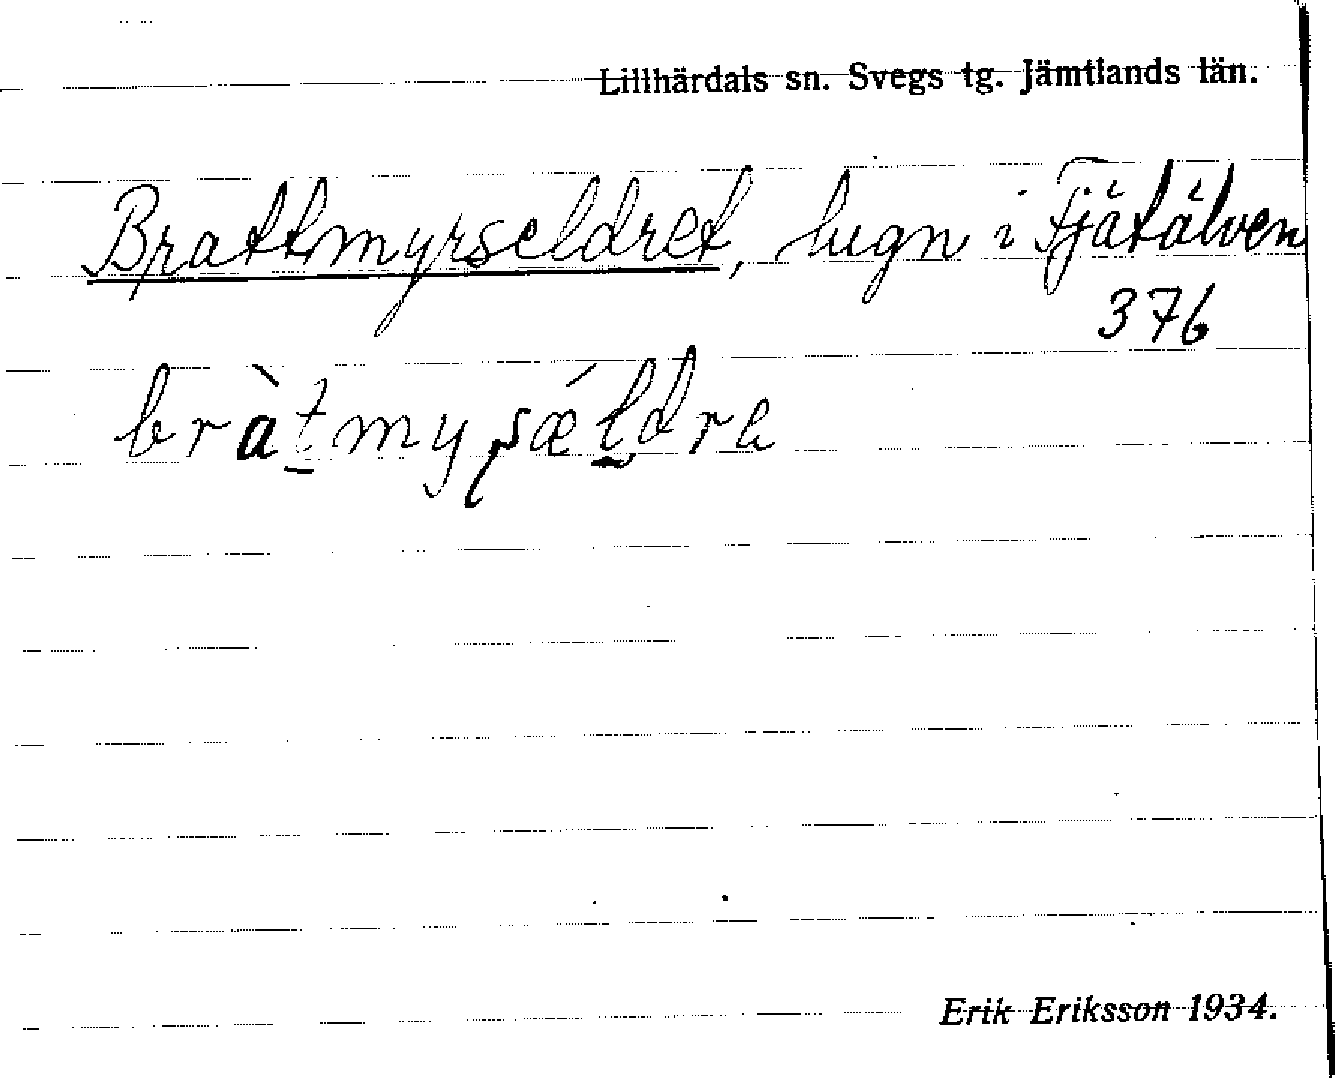 Lillhärdals sn. Svegs tg. Jämtlands län.
Brattmyrseldret, lugn i Fjätälven
376
bràt̠myʂǽl̠dra
Erik Eriksson 1934.